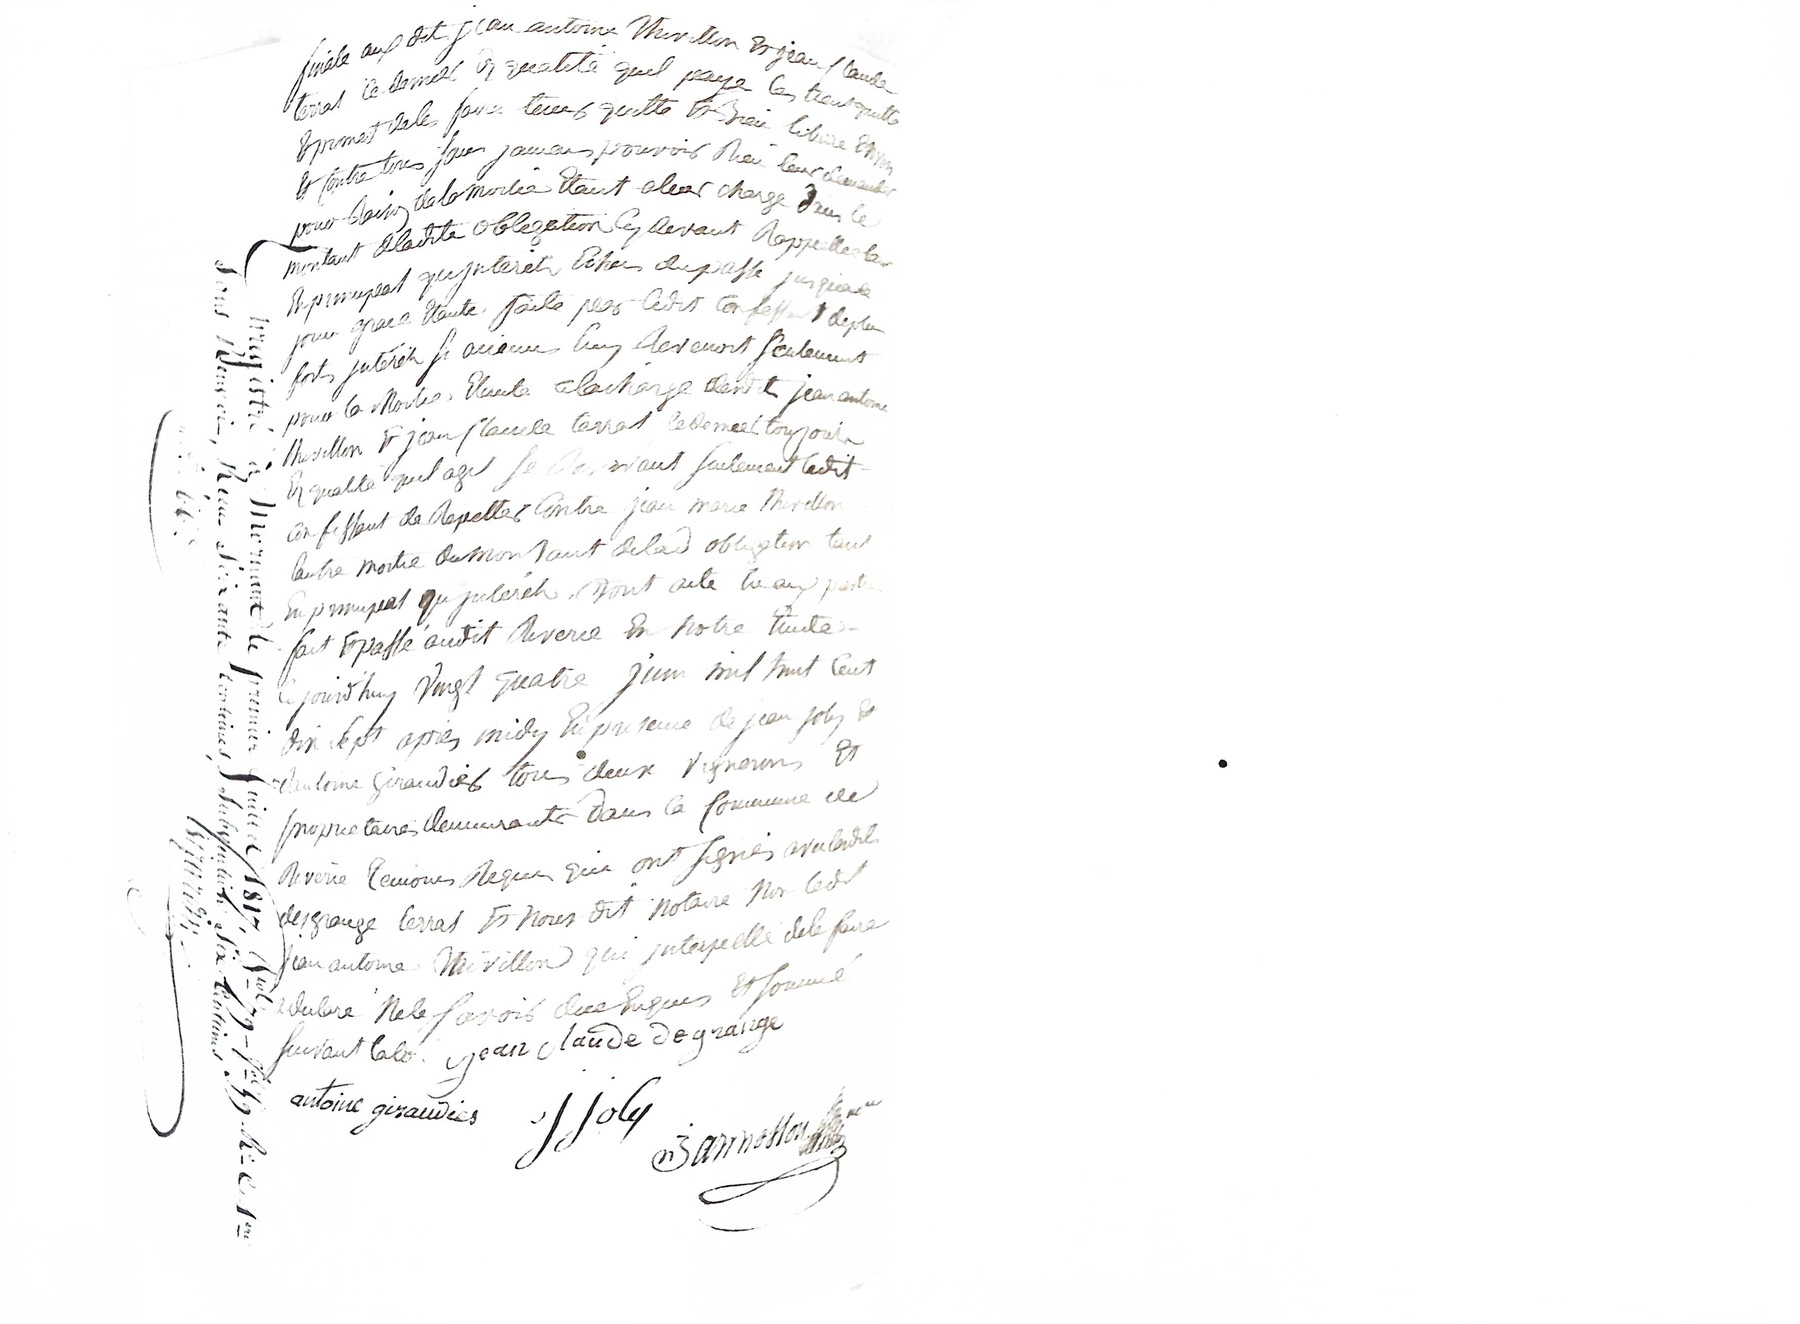 finale aux dit jean antoine Thivillon Et jean Claude
terras ce dernier En qualité quil paye les tient quitte
Et promet de les faire tenir quitte Et Bien libéré Envers
Et Contre tous sans jamais pouvoir Rien leur demander
pour Raison de la moitié Etant a leur charge Dans le
montant de ladite obligation Cy devant Rappellée tan
En principal qu jnterêts Echus du passé jusqua ce
jour grace Etante faite par ledit Confessant de plus
forts jnterêts si aucuns luy Revenoit seulement
pour la Moitié Etante a la charge desdit jean antoine
thivillon Et jean Claude terras ce dernier toujours
En qualité quil agit se Reservant seulement ledit
Confessant de Repetter Contre jean marie thivillon
lautre moitié du montant de lad obligation tant
En principal qu jnterêts. Dont acte lu aux parties
fait Et passé audit Riverie En Notre Etude
Cejourdhuy Vingt quatre juin mil huit Cent
dix sept après midy En presence de jean joly Et
dantoine giraudier tous deux Vignerons Et
proprietaires demeurants Dans la Commune de
Riverie temoins Requis qui ont signés avec lesdits
desgrange terras Et Nous dit notaire Non ledit
jean antoine Thivillon qui jnterpellé de le faire
a declaré Ne le savoir de ce Enquis Et sommé
suivant la loi. jean claude degrange
antoine giraudier j joly
Bannosson nre
Enregistré à Mornant le premier Juillet 1817, fol. 79
Reçu soixante centimes, Subvention six centimes